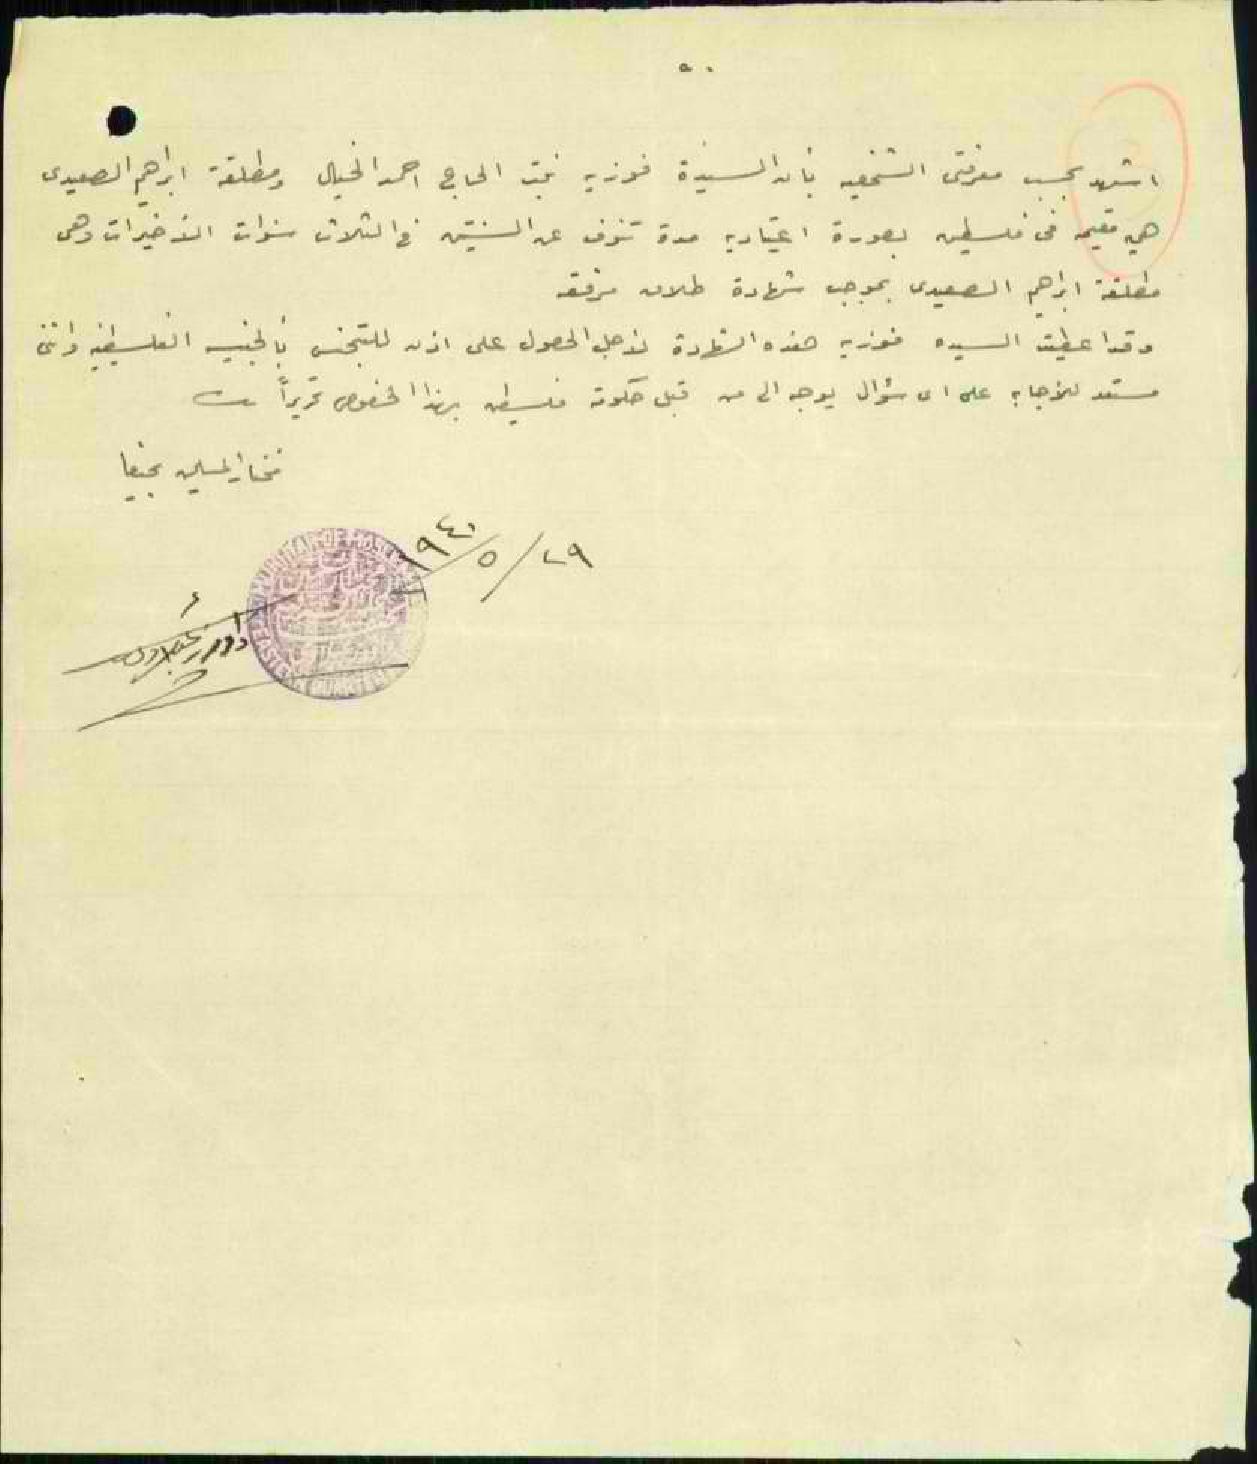 اشهد بحسب معرفتي الشخصيه بأن السيدة فوزيه بنت الحاج احمد الخيال ومطلقة ابراهيم الصعيدى
هي مقيمه في فلسطين بصورة اعتياديه مدة تنوف عن السنتين في الثلاث سنوات الأخيرات وهى
مطلقة ابراهيم الصعيدى بموجب شهادة طلاق مرفقه
وقد اعطيت السيده فوزيه هذه الشهادة لأجل الحصول على اذن للتجنس بالجنسيه الفلسطينيه وانني
مستعد للأجابه على اى سؤال يوجه الي من قبل حكومة فلسطين بهذا الخصوص تحريراً
مختار المسلمين بحيفا
٢٩/٥/١٩٤١